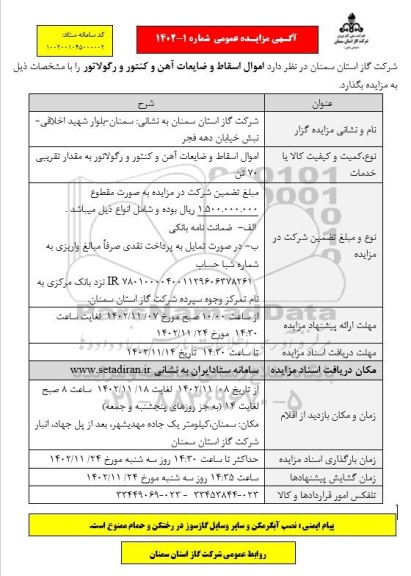 کد سامانه ستاد:
۱۰۰۲۰۰۱۰۴۵۰۰۰۰۰۲
آگهی مزایده عمومی شماره ۱-۱۴۰۲
شرکت ملی گاز ایران
شرکت گاز استان سمنان
شرکت گاز استان سمنان در نظر دارد اموال اسقاط و ضایعات آهن و کنتور و رگولاتور را با مشخصات ذیل
به مزایده بگذارد.
عنوان
شرح
نام و نشانی مزایده گزار
شرکت گاز استان سمنان به نشانی: سمنان-بلوار شهید اخلاقی-
نبش خیابان دهه فجر
نوع،کمیت و کیفیت کالا یا
خدمات
اموال اسقاط و ضایعات آهن و کنتور و رگولاتور به مقدار تقریبی
۷۰ تن
نوع و مبلغ تضمین شرکت در
مزایده
مبلغ تضمین شرکت در مزایده به صورت مقطوع
۱.۵۰۰.۰۰۰.۰۰۰ ریال بوده و شامل انواع ذیل میباشد .
الف- ضمانت نامه بانکی
ب- در صورت تمایل به پرداخت نقدی صرفاً مبالغ واریزی به
شماره شبا حساب
IR ۷۸۰۱۰۰۰۰۴۰۰۱۱۲۹۶۰۶۳۷۸۲۶۱ نزد بانک مرکزی به
نام تمرکز وجوه سپرده شرکت گاز استان سمنان.
مهلت ارائه پیشنهاد مزایده
از ساعت ۱۰:۰۰ صبح مورخ ۰۷/ ۱۴۰۲/۱۱ لغایت ساعت
۱۴:۳۰ مورخ ۲۴/ ۱۴۰۲/۱۱
مهلت دریافت اسناد مزایده
تا ساعت ۱۴:۳۰ تاریخ ۱۴۰۲/۱۱/۱۴
مکان دریافت اسناد مزایده
سامانه ستادایران به نشانی www.setadiran.ir
زمان و مکان بازدید از اقلام
از تاریخ ۰۸/ ۱۴۰۲/۱۱ لغایت ۱۸/ ۱۴۰۲/۱۱ ساعت ۸ صبح
لغایت ۱۴ (به جز روزهای پنجشنبه و جمعه)
مکان: سمنان،کیلومتر یک جاده مهدیشهر، بعد از پل جهاد، انبار
شرکت گاز استان سمنان
زمان بارگذاری اسناد مزایده
حداکثر تا ساعت ۱۴:۳۰ روز سه شنبه مورخ ۲۴/ ۱۴۰۲/۱۱
زمان گشایش پیشنهادها
ساعت ۱۴:۳۵ روز سه شنبه مورخ ۲۴/ ۱۴۰۲/۱۱
تلفکس امور قراردادها و کالا
۰۲۳-۳۳۴۵۳۸۴۴ - ۰۲۳-۳۳۴۴۹۰۶۹
پیام ایمنی: نصب آبگرمکن و سایر وسایل گازسوز در رختکن و حمام ممنوع است.
روابط عمومی شرکت گاز استان سمنان